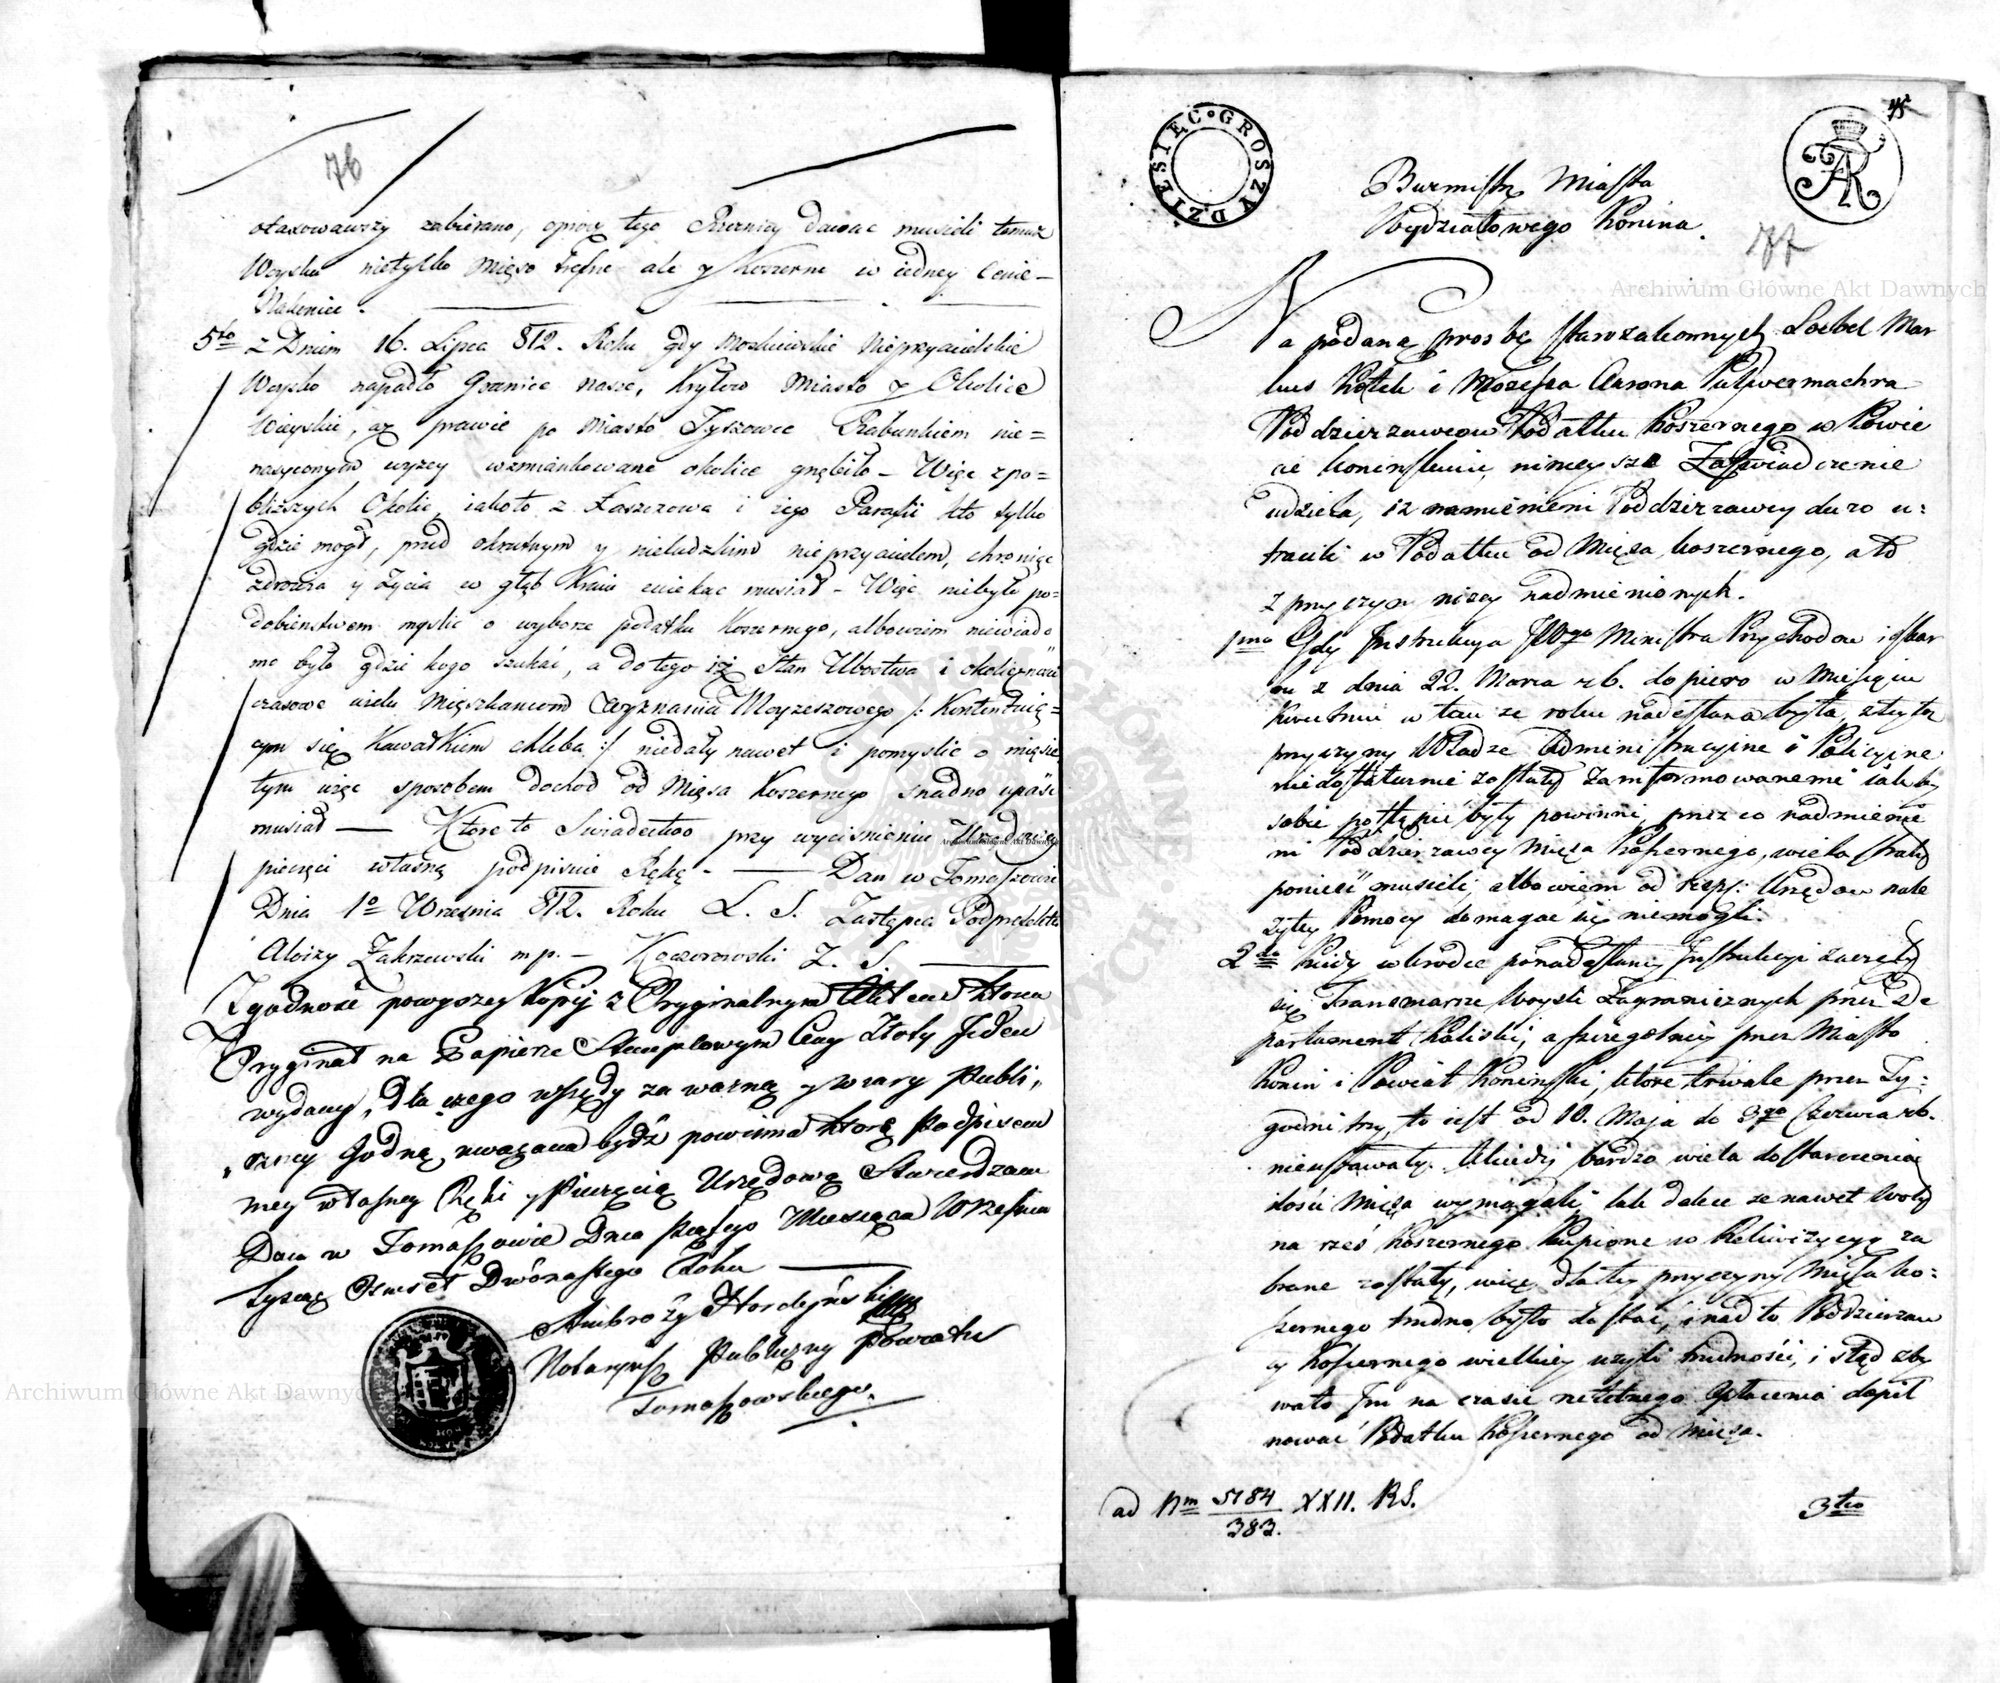 76
otaxowawszy zabierano, oprocz tego Rzeznicy dawac musieli temuz
Woysku nietylko Mięso trefne ale y Koszerne w iedney Cenie
5to z Dniem 16. Lipca 812. Roku gdy Moskiewskie Nieprzyacielskie
Woysko napadło Granice nasze, Kryłow Miasto y Okolice
Wieyskie, az prawie po Miasto Tyszowce Rabunkiem nie=
nasyconym wyzey wzmiankowane okolice gnębiło - Więc z po=
bliższych Okolic, iakoto z Łaszczowa i iego Parafii kto tylko
gdzie mogł, przed okrutnym y nieludzkim nieprzyacielem, chroniąc
zdrowia y życia w głąb Kraiu uciekac musiał - Więc niebyło po=
dobienstwem myslic o wyborze podatku Koszernego, albowiem niewiado
mo było gdzie kogo szukać, a do tego iż Stan Ubostwa i okolicznosci
czasowe wielu Mięszkancom Wyznania Moyzeszowego /: Kontentuią=
cym się Kawałkiem chleba :/ niedały nawet i pomyslic o mięsie
tym więc sposobem dochod od Mięsa Koszernego snadno upaść
musiał — Ktore to Swiadectwo przy wycisnieniu Urzędowey
pieczęci własną podpisuie Ręką - Dan w Tomaszowie
Dnia 1o Wrzesnia 812. Roku L. S. Zastępca Podprefekta
Aloizy Zakrzewski mp. - Kaczorowski Z. S.
Zgodnosc powyższey Kopij z Oryginalnym Aktem ktorea
Oryginał na Papierze Stemplowym Ceny Złoty Jeden
wydany, dla czego wszędy za ważną y wiary Publi„
„czney godną uwazana bydź powinna ktorą Podpisem
mey własney Ręki y Pieczęcią Urzędową Stwierdzam
Dan w Tomaszowie Dnia Miesiąca Wrzesnia
Tysiąc Osmset Dwónastego Roku
Ambroży Hordyński
Notaryusz Publiczny Powiatu
Tomaszowskiego.
DZIESIĘC GROSZY
75
77
Burmistrz Miasta
Wydziałowego Konina.
Na podaną prosbę starozakonnych Loebel Mar
kus Kołek i Mozesza Aarona Pulwermachra
Poddzierzawcow Podatku Koszernego w Powie
cie koninskim, nineysze Zaswiadczenie
udziela, iz namienieni Poddzierzawcy duzo u=
tracili w Podatku od Mięsa koszernego, a to
z przyczyn nizey nadmienionych.
1mo Gdy Instrukcya JWgo Ministra Przychodow i skar
bu z dnia 22. Marca r.b. dopiero w Miesiącu
Kwietniu w tem ze roku nadesłana była, z tey to
przyczyny Władze Administracyine i Policyine
niedostatecznie zostały zainformowanemi iak by
sobie postąpić były powinni, przez co nadmienie
ni Poddzierzawcy Mięsa Koszernego, wiele straty
ponieść musieli, albowiem od resp: Urzędow nale
zytey Pomocy domagac się niemogli.
2do Kiedy wkrodce ponadesłaney Instrukcyi zaczęły
się Transmarsze Woysk Zagranicznych przez De
partament Kaliski, a szczegolniey przez Miasto
Konin i Powiat Koninski, ktore trwałe przez Ty=
godni trzy, to iest od 10. Maja do 3go Czerwca r.b.
nieustawały. bardzo wiela dostarczenia
ilości Mięsa wymagali, tak dalece ze nawet Woły
na rześ Koszernego kupione w Rekwizycyą za
brane zostały, więc dla tey przyczyny Mięsa ko=
szernego trudno było dostać, i nad to Poddzierzaw
cy Koszernego wielkiey uzyli trudności, i stąd zby
wało Im na czasie opłacenia dopil
nować Podatku Koszernego od Mięsa.
ad Nm 5184/383. XXII. RS.
3tio
Archiwum Główne Akt Dawnych
Archiwum Główne Akt Dawnych
Archiwum Główne Akt Dawnych